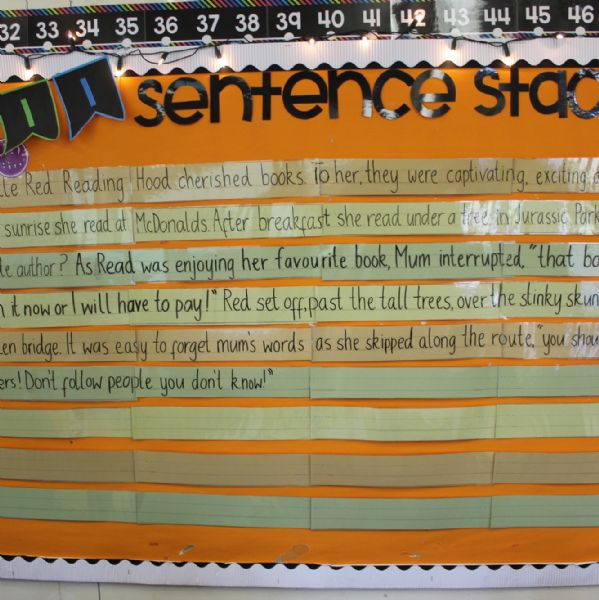 32 33 34 35 36 37 38 39 40 41 42 43 44 45 46
sentence stac
Red Reading Hood cherished books. To her, they were captivating, exciting
sunrise she read at McDonalds. After breakfast she read under a tree in Jurassic Park
author? As Read was enjoying her favourite book, Mum interrupted, "that bo
it now or I will have to pay!" Red set off, past the tall trees, over the stinky skun
en bridge. It was easy to forget mum's words as she skipped along the route, "you shou
ers! Don't follow people you don't know!"